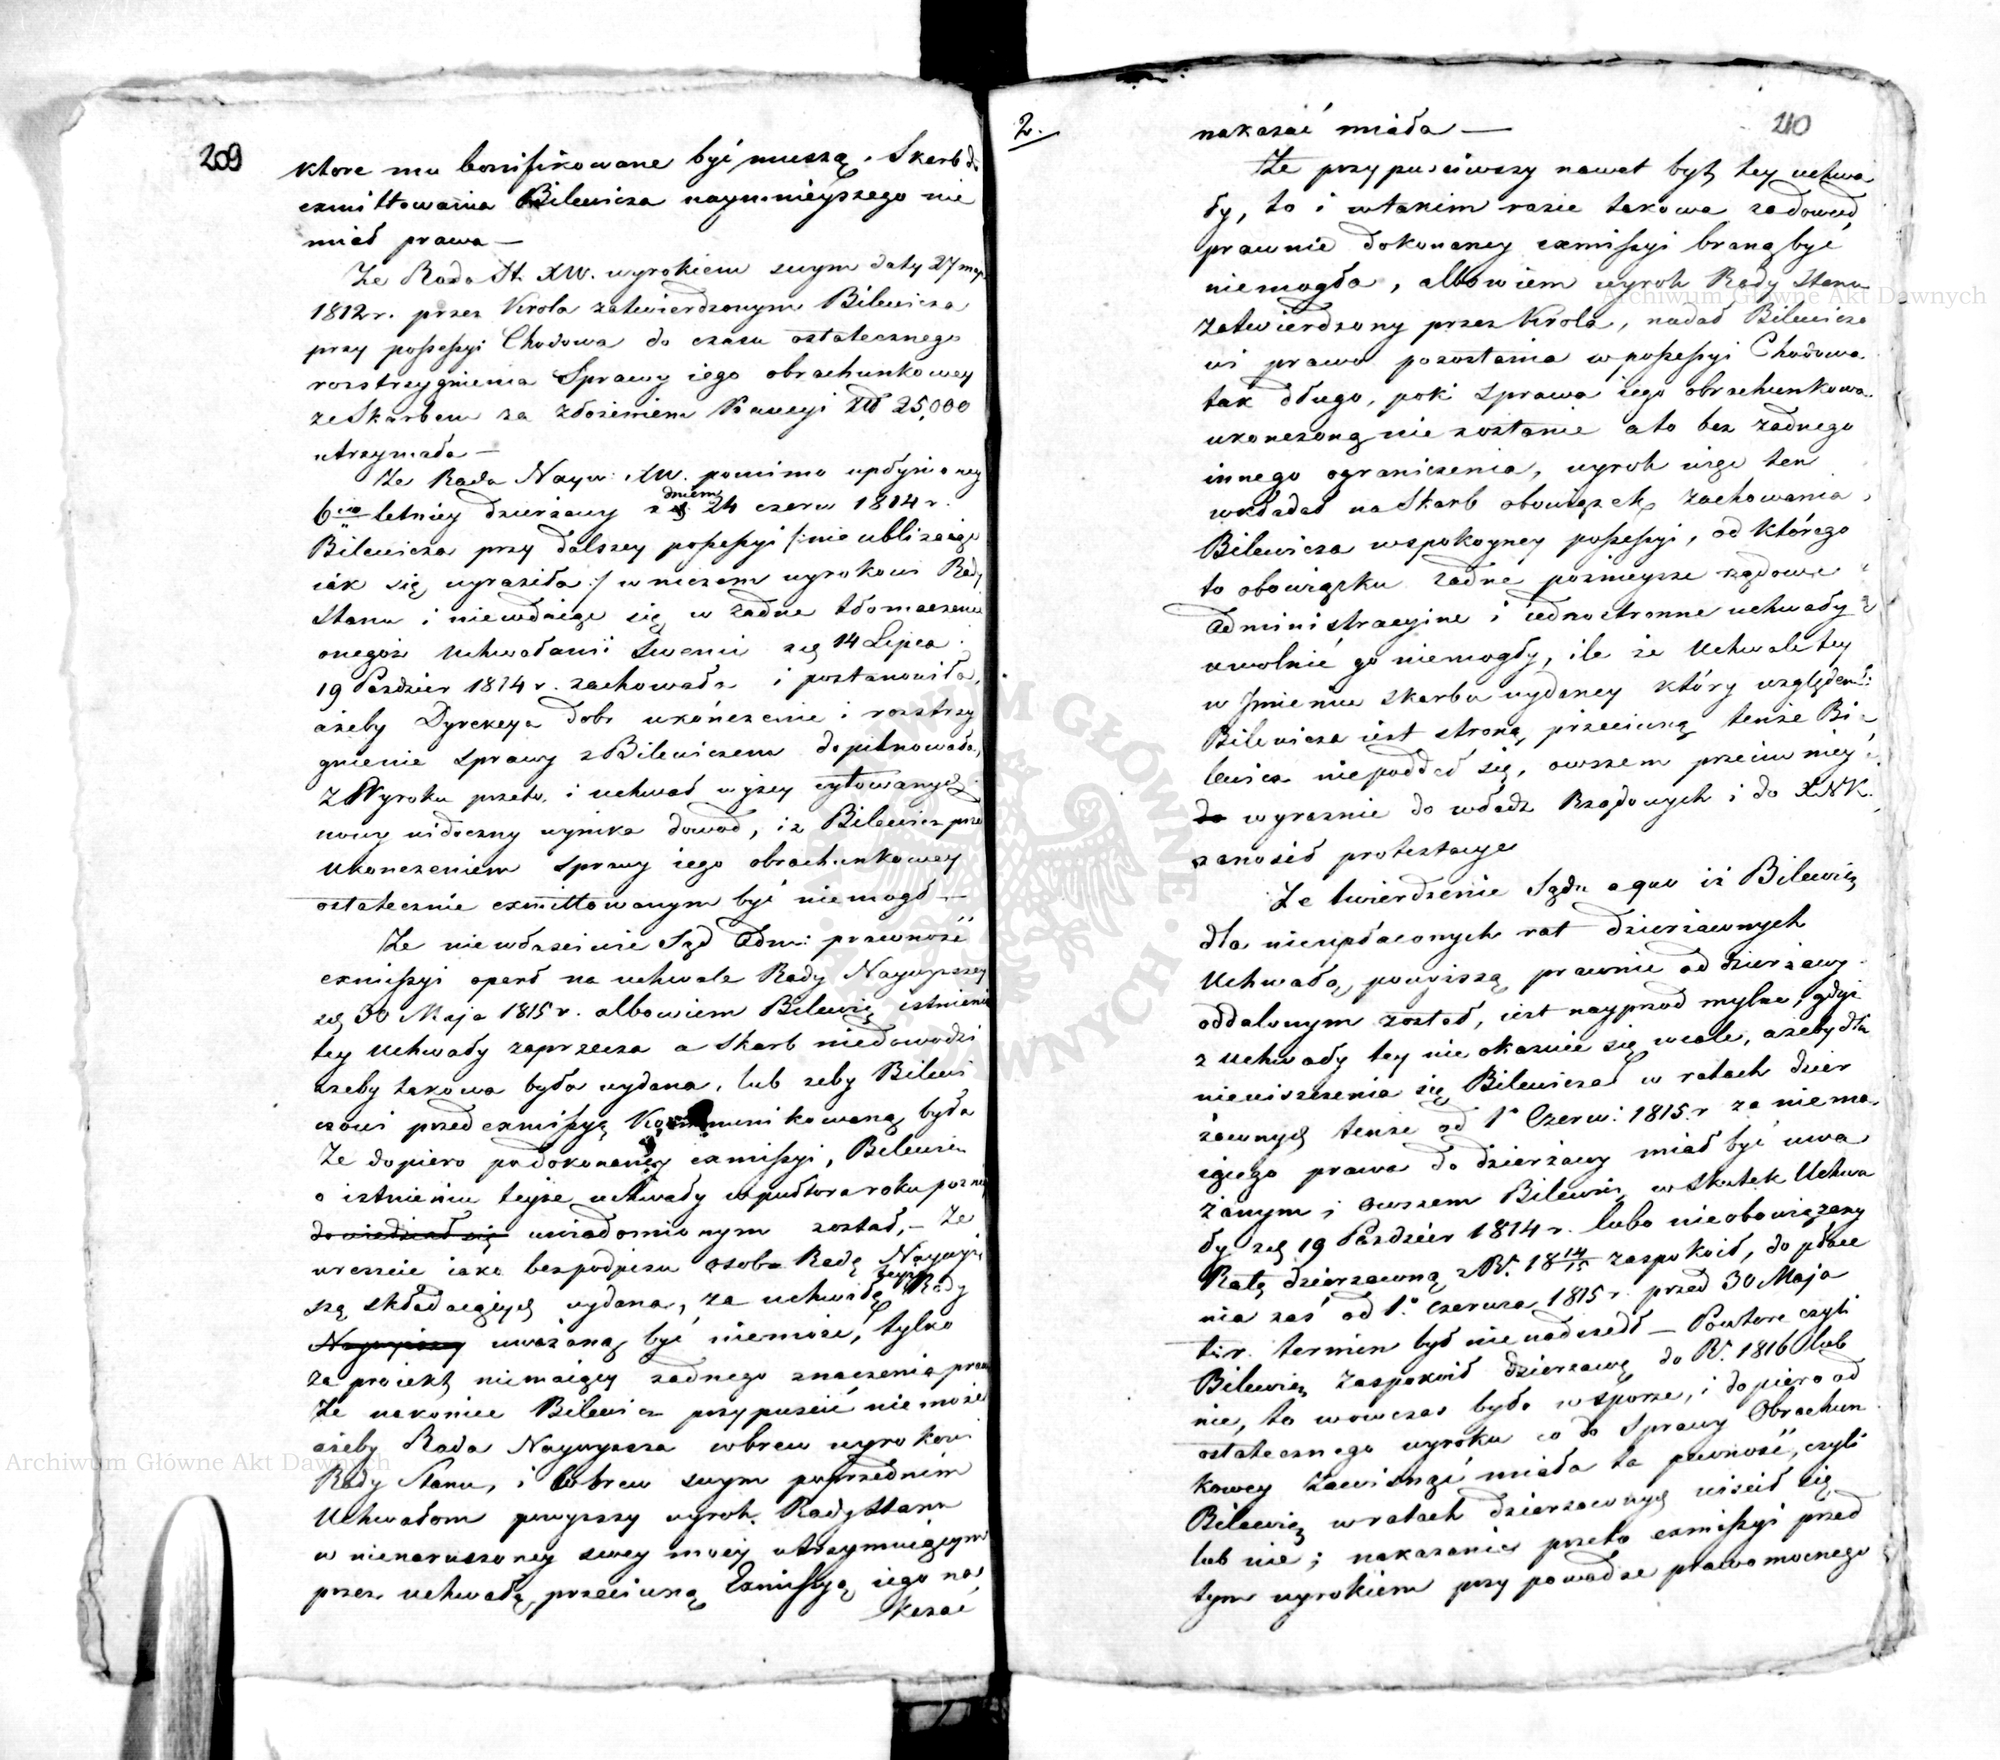 209
ktore mu bonifikowane być muszą. Skarb do
exmittowania Bilewicza naymnieyszego nie
miał prawa —
Że Rada St. XW. wyrokiem swym daty 27 maja
1812 r. przez Krola zatwierdzonym Bilewicza
przy possessyi Chodowa do czasu ostatecznego
rozstrzygnienia Sprawy iego obrachunkowey
ze Skarbem za złożeniem Kaucyi Złł 25,000
utrzymała —
Że Rada Nayw: XW. pomimo upłynioney
6cio letniey dzierżawy z dniem 24 czerw 1814 r.
Bilewicza przy dalszey possessyi /: nie ubliżaiąc
iak się wyraziła :/ w niczem wyrokowi Rady
Stanu i niewdaiąc się w żadne tłomaczenie
onegoż Uchwałami swemi z d. 14 Lipca
19 Paździer 1814 r. zachowała i postanowiła,
ażeby Dyrekcya dobr ukończenie i rozstrzy
gnienie sprawy z Bilewiczem dopilnowała,
Z Wyroku przeto i uchwał wyżey cytowanych
nowy widoczny wynika dowod, iż Bilewicz przed
Ukonczeniem sprawy iego obrachunkowey
ostatecznie exmittowanym być niemogł —
Że niewłaściwie Sąd Adm: prawność
exmissyi oparł na uchwale Rady Naywyższey
z d. 30 Maja 1815 r. albowiem Bilewicz istnieniu
tey Uchwały zaprzecza a Skarb niedowodzi
żeby takowa była wydana, lub żeby Bilewi
czowi przed exmissyą Kommunikowaną była
Że dopiero po dokonaney exmissyi, Bilewicz
o istnieniu teyże uchwały w pułtora roku pozniey
dowiedział się uwiadomionym został, — Że
wreszcie iako bez podpisu osob Radę Naywyż
szą składaiących wydana, za uchwałę teyże Rady
Naywyższey uważaną być niemoże, tylko
za proiekt niemaiący żadnego znaczenia praw
Że nakoniec Bilewicz przypuścić niemoże
ażeby Rada Naywyższa wbrew wyrokowi
Rady Stanu, i wbrew swym poprzednim
Uchwałom powyższy wyrok Rady Stanu
w nienaruszoney swey mocy utrzymuiącym
przez uchwałę przeciwną Exmissyą iego na=
kazać
2.
210
nakazać miała —
Że przypuściwszy nawet byt tey uchwa
ły, to i wtakim razie takowa za dowod
prawnie dokonaney exmissyi braną być
niemogła, albowiem wyrok Rady Stanu
zatwierdzony przez Krola, nadał Bilewiczo
wi prawo pozostania w possessyi Chodowa
tak długo, poki sprawa iego obrachunkowa
ukonczoną nie zostanie a to bez żadnego
innego ograniczenia, wyrok więc ten
wkładał na Skarb obowiązek zachowania
Bilewicza w spokoyney possessyi, od którego
to obowiązku żadne poznieysze rządowe
administracyine i iednostronne uchwały
uwolnić go niemogły, ile że Uchwale tey
w Jmieniu skarbu wydaney który względem
Bilewicza iest stroną przeciwną tenże Bi=
lewicz niepoddał się, owszem przeciw niey
do wyraznie do władz Rządowych i do XNK.
zanosił protestacye
Że twierdzenie Sądu a quo iż Bilewicz
dla nieupłaconych rat dzierżawnych
Uchwałą powyższą prawnie od dzierżawy
oddalonym został, iest nayprzod mylne, gdyż
z Uchwały tey nie okazuie się wcale, ażeby dla
nieuiszczenia się Bilewicza w ratach dzier
żawnych tenże od 1o Czerw: 1815 r za niema=
iącego prawa do dzierżawy miał być uwa
żanym i owszem Bilewicz w skutek Uchwa
ły z d. 19 Paździer 1814 r. lubo nieobowiązany
Ratę dzierżawną z R. 18 14/15 zaspokoił, do płace
nia zaś od 1.o Czerwca 1815 r. przed 30 Maja
t: r. termin był nie nadszedł — Powtore czyli
Bilewicz zaspokoił dzierżawę do R. 1816 lub
nie, to wowczas było w sporze, i dopiero od
ostatecznego wyroku co do Sprawy Obrachun
kowey zawisnąć miała ta pewność, czyli
Bilewicz w ratach dzierżawnych uiścił się
lub nie; nakazanie przeto exmissyi przed
tym wyrokiem przy powadze prawomocnego